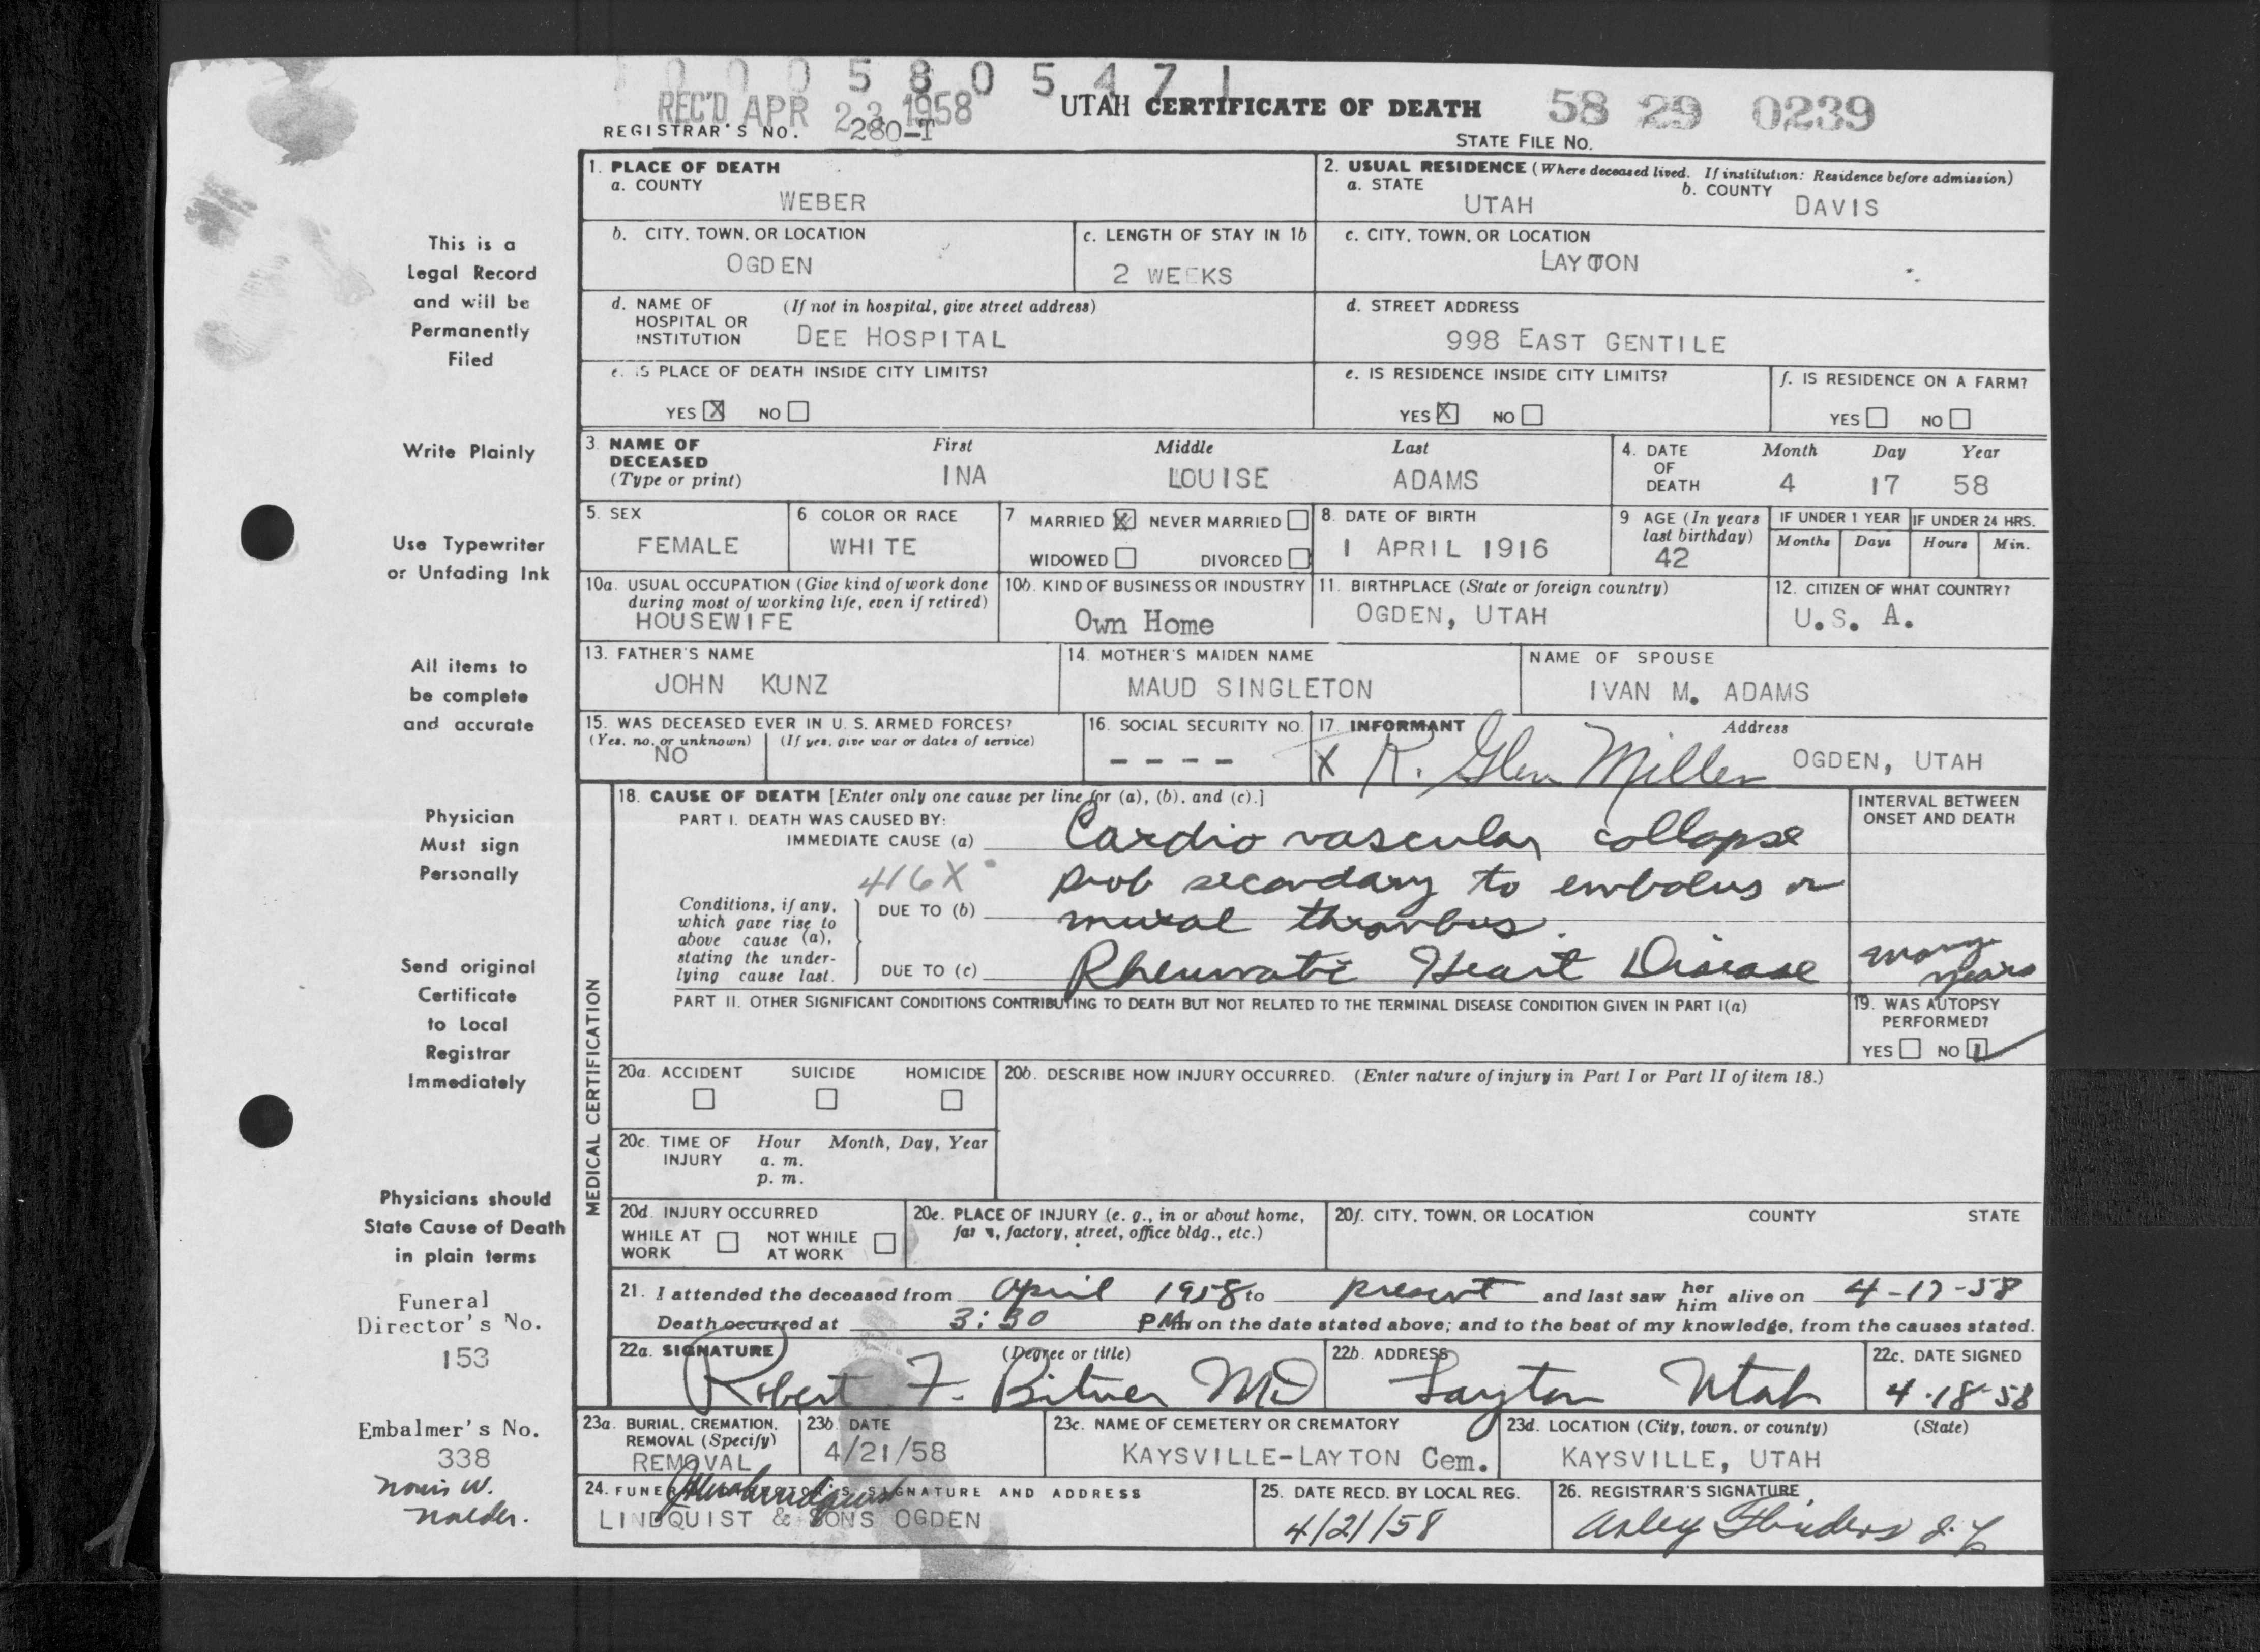 0 0 0 5 8 0 5 4 7 1
REC'D APR 23 1958
UTAH CERTIFICATE OF DEATH 58 29 0239
REGISTRAR'S NO. 280-T
STATE FILE NO.
1. PLACE OF DEATH
a. COUNTY
WEBER
2. USUAL RESIDENCE (Where deceased lived. If institution: Residence before admission)
a. STATE
UTAH
b. COUNTY
DAVIS
b. CITY, TOWN, OR LOCATION
OGDEN
c. LENGTH OF STAY IN 1b
2 WEEKS
c. CITY, TOWN, OR LOCATION
LAYTON
d. NAME OF HOSPITAL OR INSTITUTION (If not in hospital, give street address)
DEE HOSPITAL
d. STREET ADDRESS
998 EAST GENTILE
e. IS PLACE OF DEATH INSIDE CITY LIMITS?
YES X NO
e. IS RESIDENCE INSIDE CITY LIMITS?
YES X NO
f. IS RESIDENCE ON A FARM?
YES NO
3. NAME OF DECEASED (Type or print)
First Middle Last
INA LOUISE ADAMS
4. DATE OF DEATH
Month Day Year
4 17 58
5. SEX
FEMALE
6 COLOR OR RACE
WHITE
7 MARRIED X NEVER MARRIED
WIDOWED DIVORCED
8. DATE OF BIRTH
1 APRIL 1916
9 AGE (In years last birthday)
42
IF UNDER 1 YEAR
Months Days
IF UNDER 24 HRS.
Hours Min.
10a. USUAL OCCUPATION (Give kind of work done during most of working life, even if retired)
HOUSEWIFE
10b. KIND OF BUSINESS OR INDUSTRY
Own Home
11. BIRTHPLACE (State or foreign country)
OGDEN, UTAH
12. CITIZEN OF WHAT COUNTRY?
U.S. A.
13. FATHER'S NAME
JOHN KUNZ
14. MOTHER'S MAIDEN NAME
MAUD SINGLETON
NAME OF SPOUSE
IVAN M. ADAMS
15. WAS DECEASED EVER IN U. S. ARMED FORCES?
(Yes, no, or unknown) (If yes, give war or dates of service)
NO
16. SOCIAL SECURITY NO.
- - - -
17. INFORMANT Address
X R. Glen Miller OGDEN, UTAH
MEDICAL CERTIFICATION
18. CAUSE OF DEATH [Enter only one cause per line for (a), (b), and (c).]
PART I. DEATH WAS CAUSED BY:
IMMEDIATE CAUSE (a) Cardio vascular collapse
416X
prob secondary to embolus or
Conditions, if any, which gave rise to above cause (a), stating the underlying cause last.
DUE TO (b) mural thrombus.
DUE TO (c) Rheumatic Heart Disease
INTERVAL BETWEEN ONSET AND DEATH
many years
PART II. OTHER SIGNIFICANT CONDITIONS CONTRIBUTING TO DEATH BUT NOT RELATED TO THE TERMINAL DISEASE CONDITION GIVEN IN PART I(a)
19. WAS AUTOPSY PERFORMED?
YES NO
20a. ACCIDENT SUICIDE HOMICIDE
20b. DESCRIBE HOW INJURY OCCURRED. (Enter nature of injury in Part I or Part II of item 18.)
20c. TIME OF INJURY Hour Month, Day, Year
a. m.
p. m.
20d. INJURY OCCURRED
WHILE AT WORK NOT WHILE AT WORK
20e. PLACE OF INJURY (e. g., in or about home, farm, factory, street, office bldg., etc.)
20f. CITY, TOWN, OR LOCATION COUNTY STATE
21. I attended the deceased from April 1958 to present and last saw her him alive on 4-17-58
Death occurred at 3:30 PM on the date stated above; and to the best of my knowledge, from the causes stated.
22a. SIGNATURE (Degree or title)
Robert F. Bitner MD
22b. ADDRESS
Layton Utah
22c. DATE SIGNED
4-18-58
23a. BURIAL, CREMATION, REMOVAL (Specify)
REMOVAL
23b. DATE
4/21/58
23c. NAME OF CEMETERY OR CREMATORY
KAYSVILLE-LAYTON Cem.
23d. LOCATION (City, town, or county) (State)
KAYSVILLE, UTAH
24. FUNERAL DIRECTOR'S SIGNATURE AND ADDRESS
LINDQUIST & SONS OGDEN
25. DATE RECD. BY LOCAL REG.
4/21/58
26. REGISTRAR'S SIGNATURE
This is a
Legal Record
and will be
Permanently
Filed
Write Plainly
Use Typewriter
or Unfading Ink
All items to
be complete
and accurate
Physician
Must sign
Personally
Send original
Certificate
to Local
Registrar
Immediately
Physicians should
State Cause of Death
in plain terms
Funeral
Director's No.
153
Embalmer's No.
338